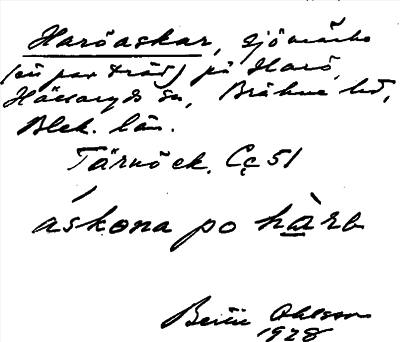 Haröaskar, sjömärke
(ett par träd) på Harö,
Hällaryds sn, Bräkne hd,
Blek. län.
Tärnö ek. Cc 51
áskona po hàrb
Bertil Ohlsson
1928